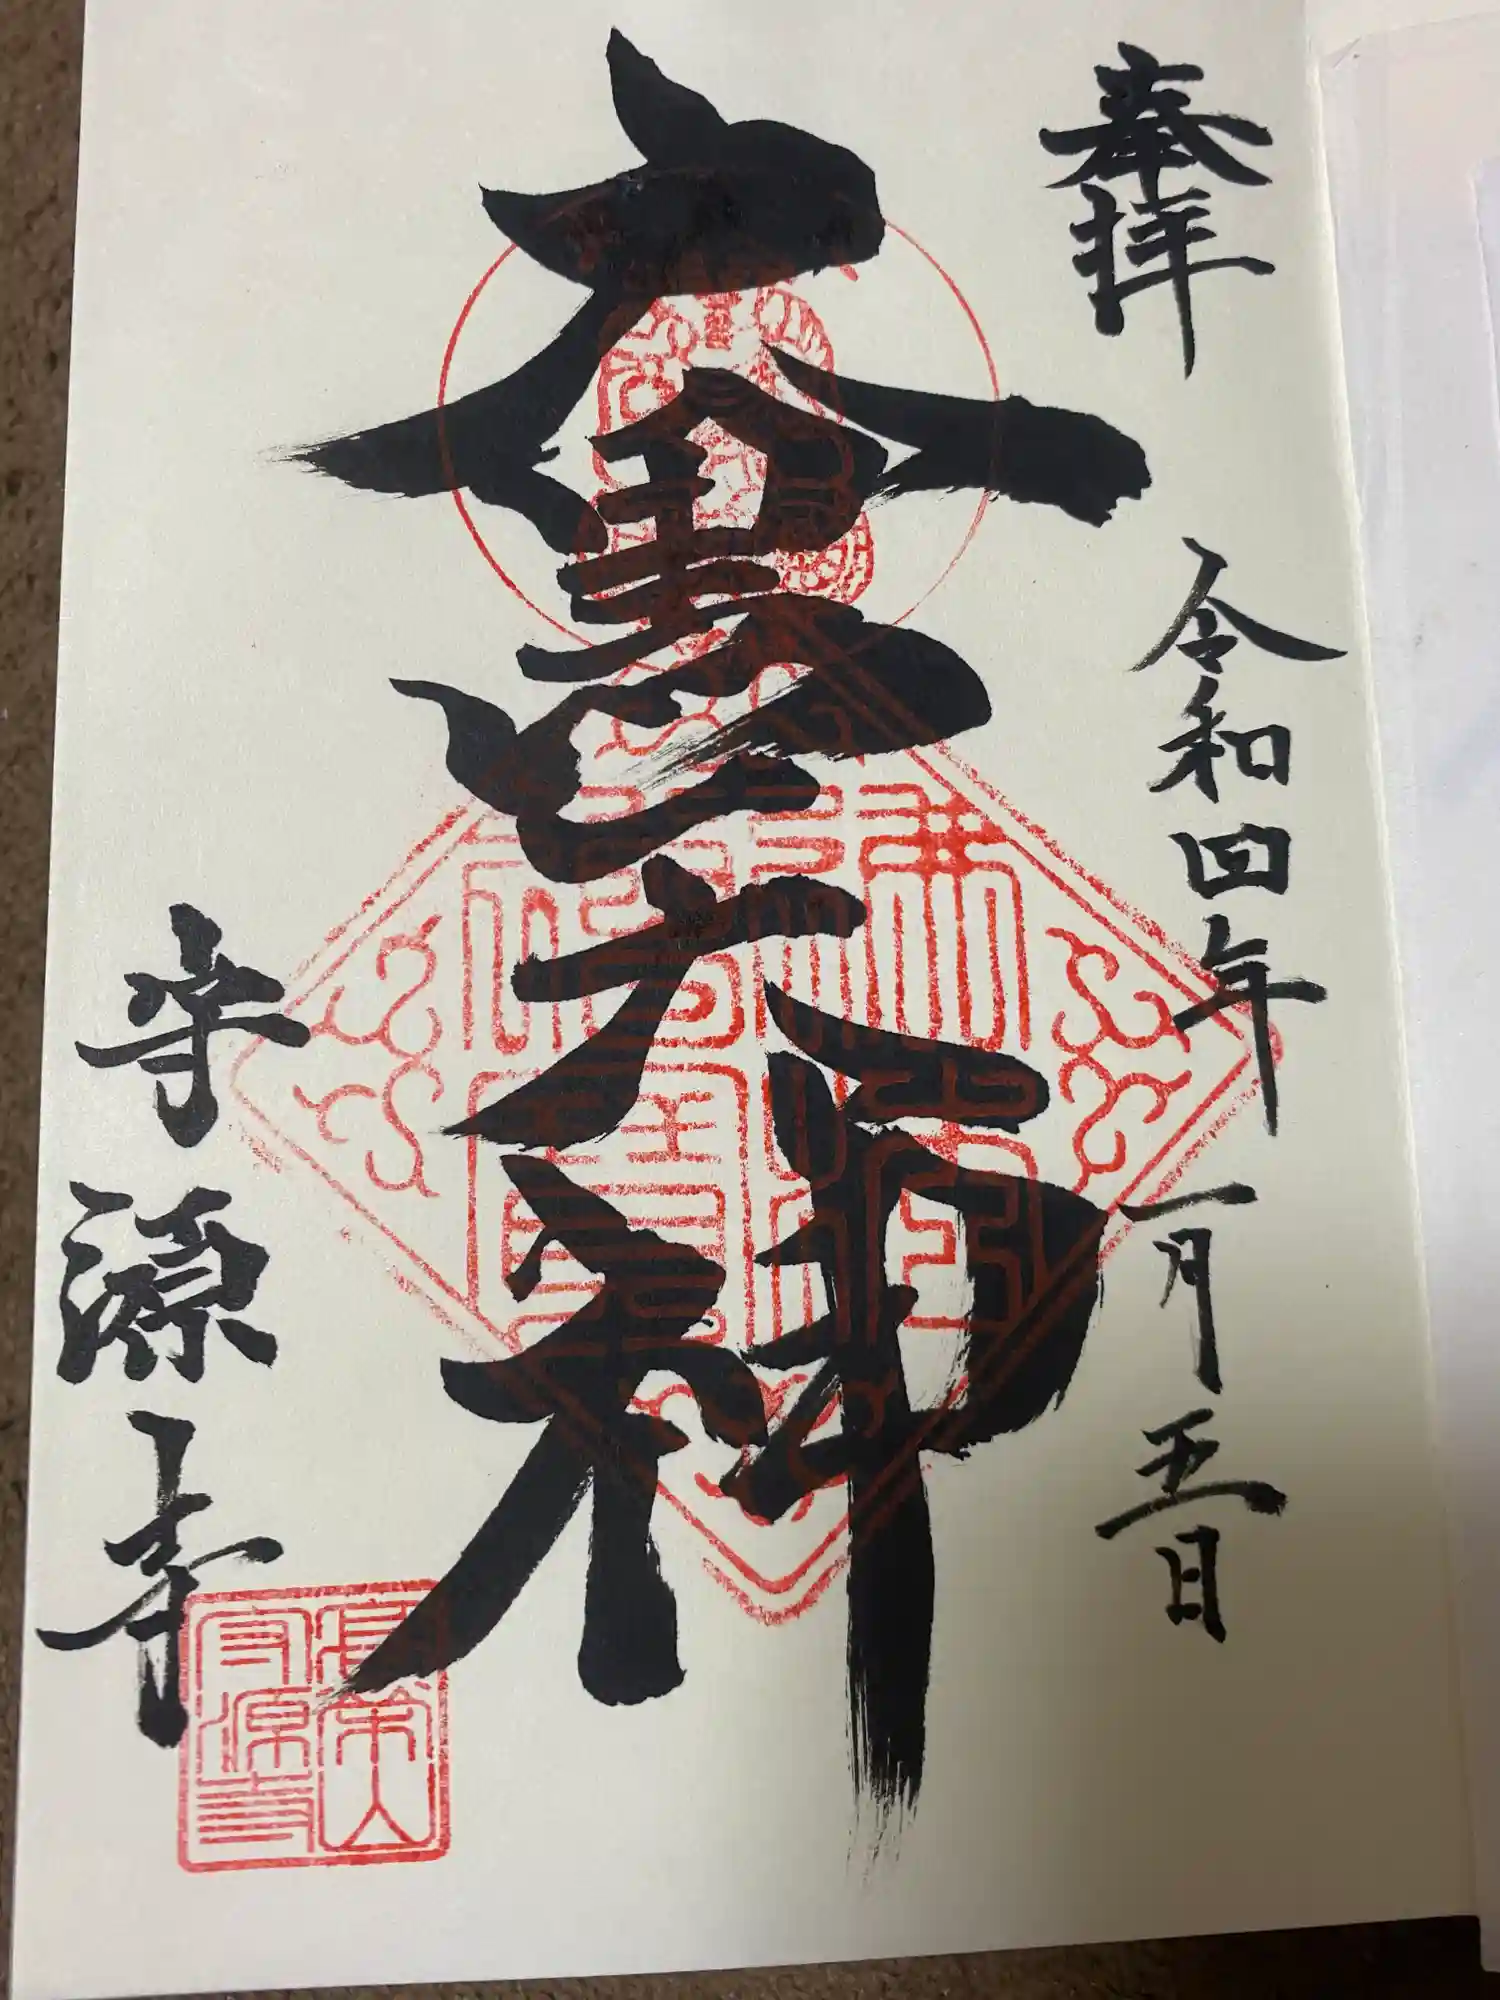 奉拝
令和四年一月五日
大黒天神
守源寺